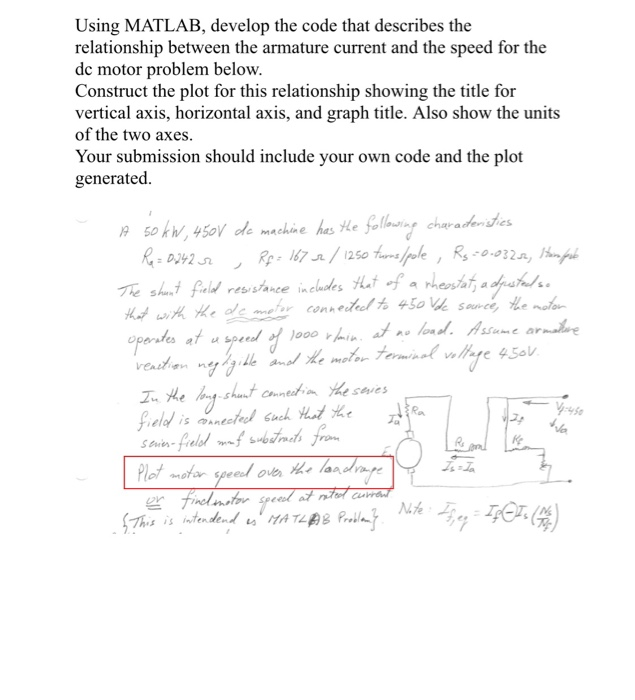 Using MATLAB, develop the code that describes the
relationship between the armature current and the speed for the
dc motor problem below.
Construct the plot for this relationship showing the title for
vertical axis, horizontal axis, and graph title. Also show the units
of the two axes.
Your submission should include your own code and the plot
generated.
A 50 kW, 450V dc machine has the following characteristics
Ra = 0.242 Ω , Rf = 167 Ω / 1250 turns/pole , Rs = 0.032 Ω,
The shunt field resistance includes that of a rheostat, adjusted so
that with the dc motor connected to 450 Vdc source, the motor
operates at a speed of 1000 r/min. at no load. Assume armature
reaction negligible and the motor terminal voltage 450V.
In the long-shunt connection the series
field is connected such that the
series-field mmf substracts from
Plot motor speed over the load range
or find motor speed at rated current
{This is intendend as "MATLAB Problem}
Ia Ra
Rs
Is = Ia
If
Rf
Vt=450
Va
Note: If,eq = If ⊖ Is (Ns/Nf)